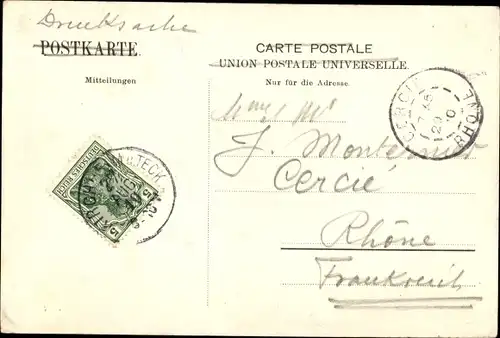 Drucksache
POSTKARTE.
Mitteilungen
CARTE POSTALE
UNION POSTALE UNIVERSELLE.
Nur für die Adresse.
J. Monternier
Cercié
Rhône
Frankreich
CERCIÉ
RHONE
DEUTSCHES REICH
5 5
KIRCHHEIM U. TECK